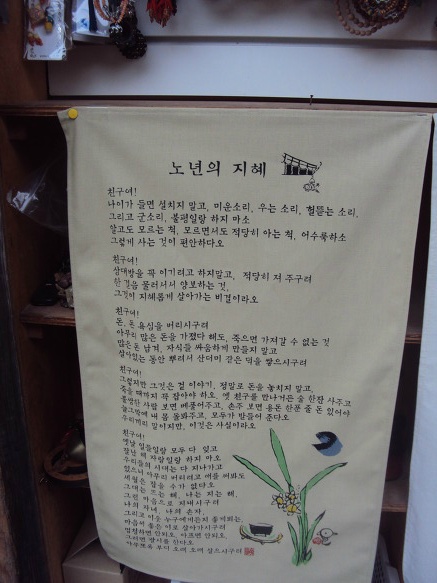 노년의 지혜
친구여!
나이가 들면 설치지 말고, 미운소리, 우는 소리, 헐뜯는 소리,
그리고 군소리, 불평일랑 하지 마소
알고도 모르는 척, 모르면서도 적당히 아는 척, 어수룩하소
그렇게 사는 것이 편안하다오
친구여!
상대방을 꼭 이기려고 하지말고, 적당히 져 주구려
한 걸음 물러서서 양보하는 것,
그것이 지혜롭게 살아가는 비결이라오
친구여!
돈, 돈 욕심을 버리시구려
아무리 많은 돈을 가졌다 해도, 죽으면 가져갈 수 없는 것
많은돈 남겨, 자식들 싸움하게 만들지 말고
살아있는 동안 뿌려서 산더미 같은 덕을 쌓으시구려
친구여!
그렇지만 그것은 겉 이야기, 정말로 돈을 놓치지 말고,
죽을 때까지 꼭 잡아야 하오. 옛 친구를 만나거든 술 한잔 사주고
불쌍한 사람 보면 베풀어주고, 손주 보면 용돈 한푼 줄 돈 있어야
늘그막에 내 몸 돌봐주고, 모두가 받들어 준다오
우리끼리 말이지만, 이것은 사실이라오
친구여!
옛날 일들일랑 모두 다 잊고
잘난 체 자랑일랑 하지 마오
우리들의 시대는 다 지나가고
있으니 아무리 버티려고 애를 써봐도
세월은 잡을 수가 없다오
그대는 뜨는 해, 나는 지는 해,
그런 마음으로 지내시구려
나의 자녀, 나의 손자,
그리고 이웃 누구에게든지 좋게뵈는,
마음씨 좋은 이로 살아가시구려
멍청하면 안되오, 아프면 안되오,
그러면 괄시를 한다오
아무쪼록 부디 오래 오래 살으시구려